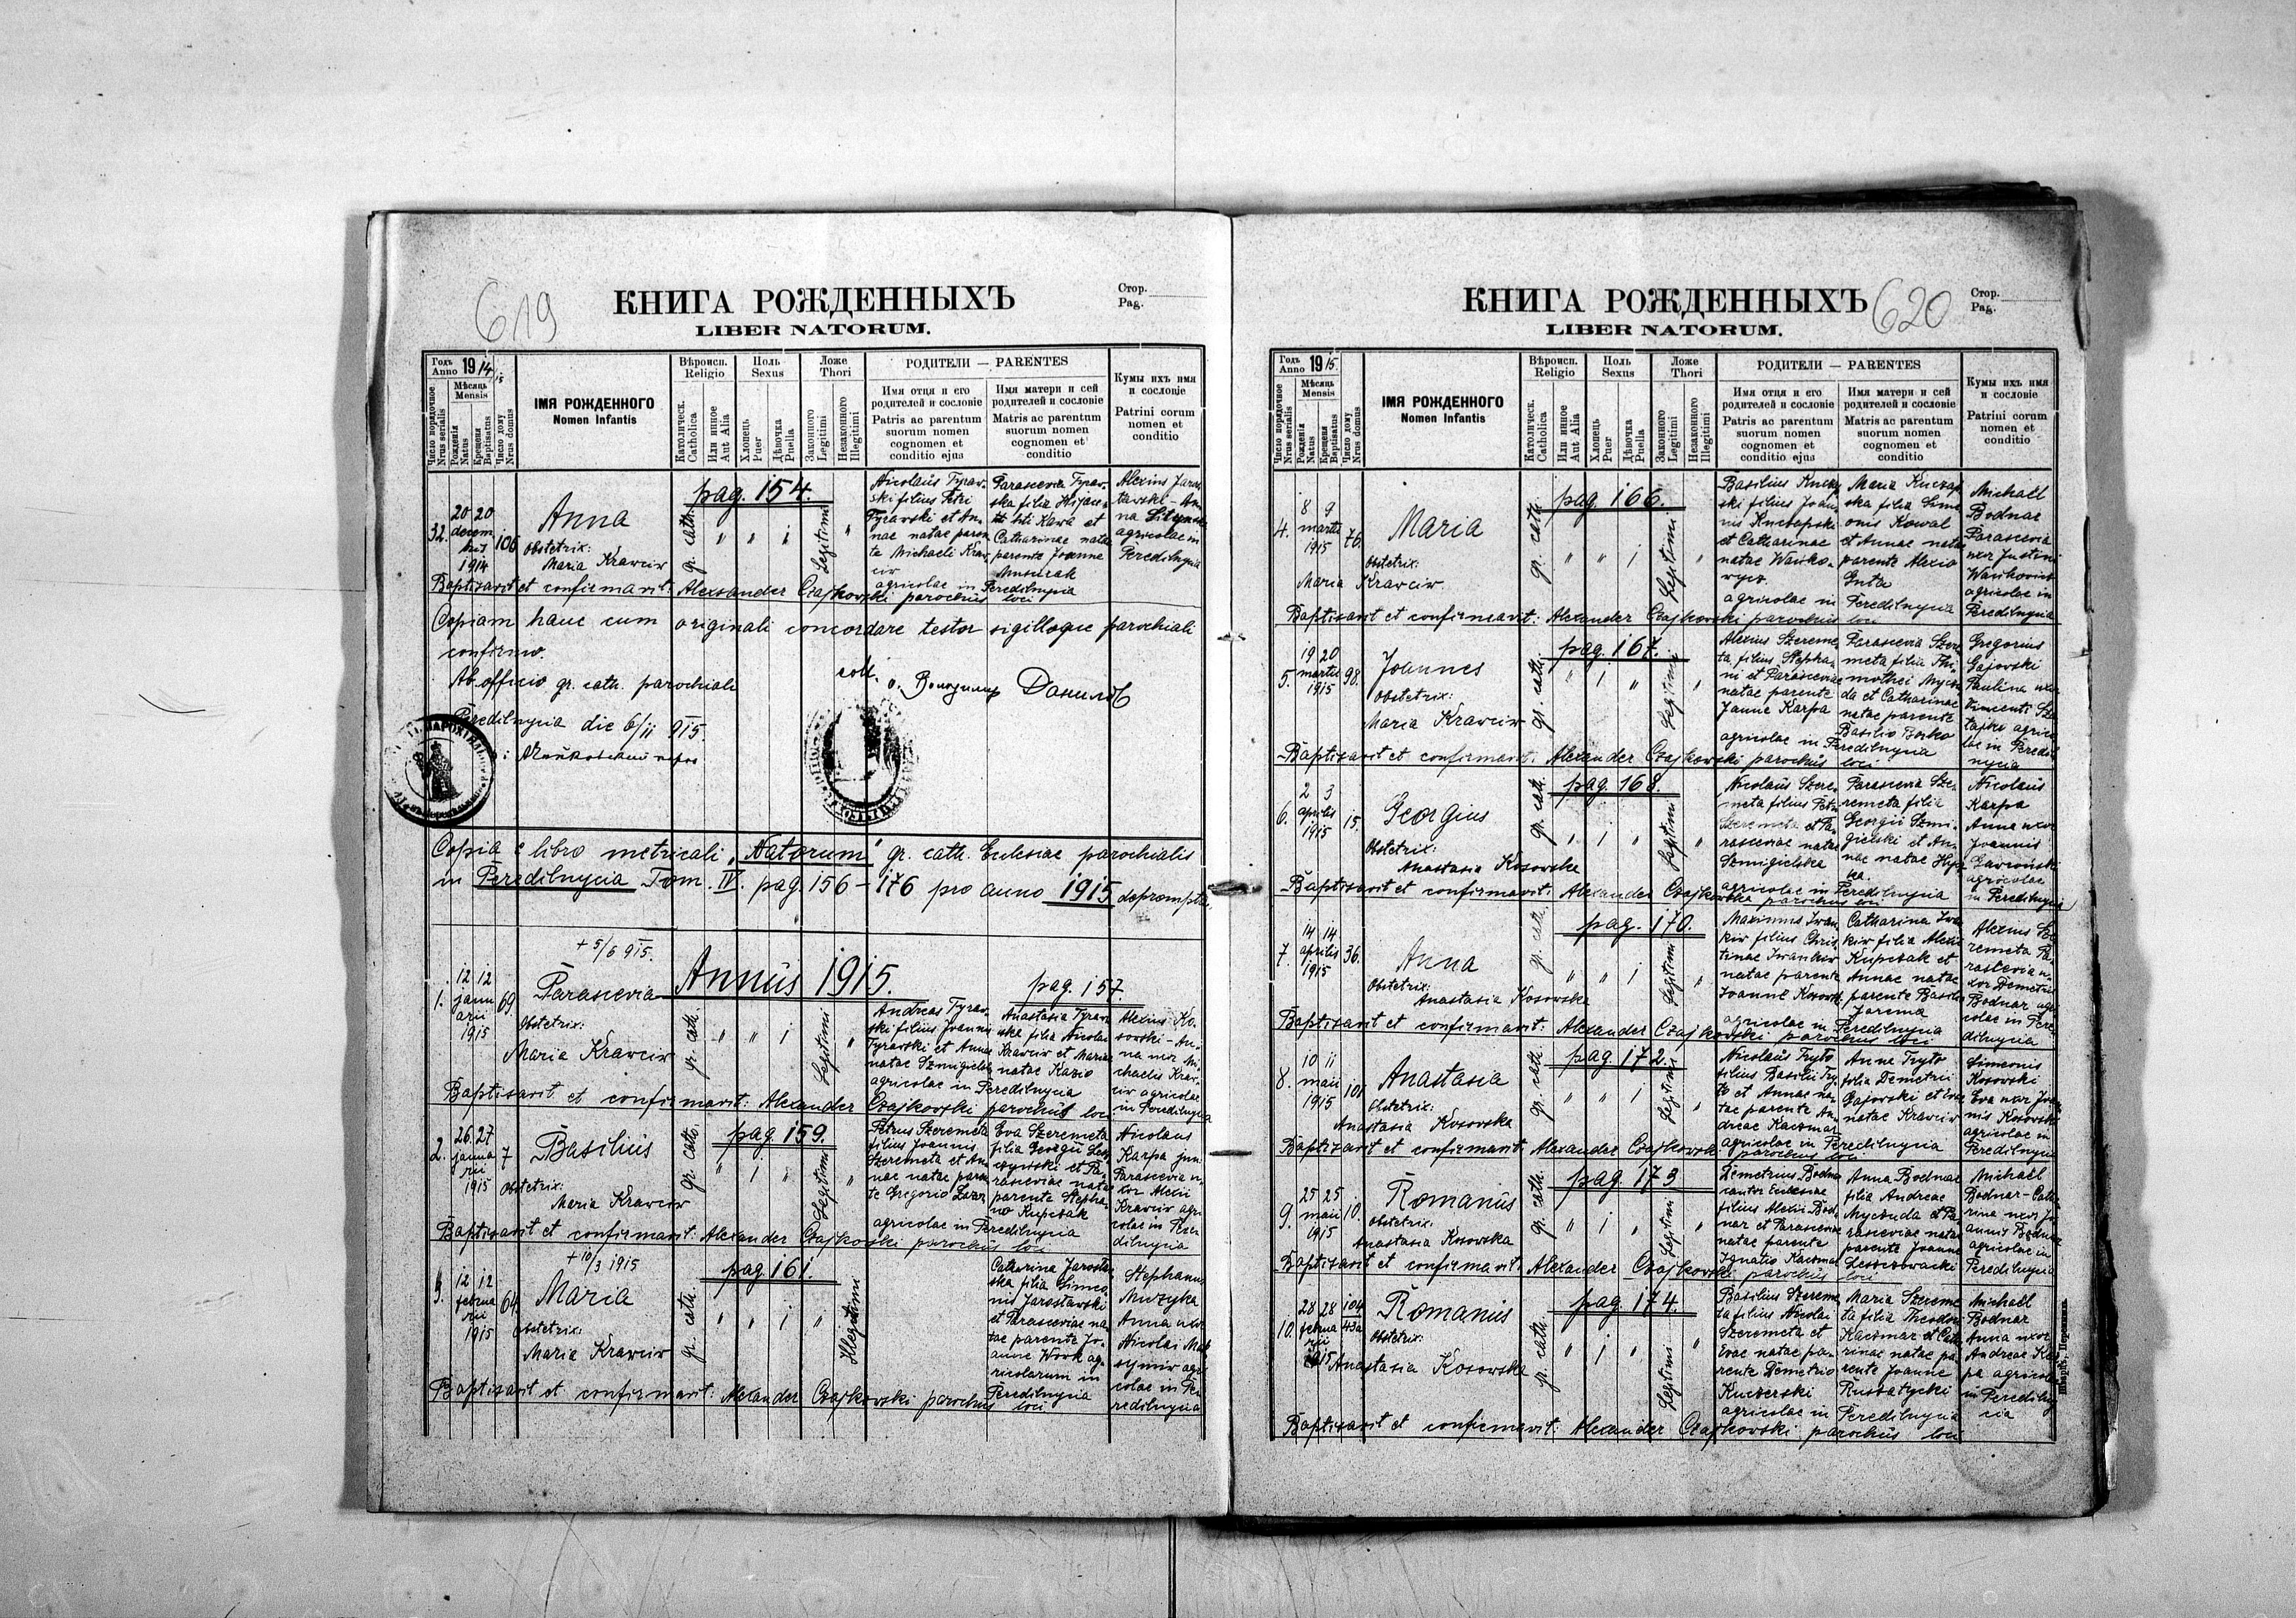 619
КНИГА РОЖДЕННЫХЪ
LIBER NATORUM.
Стор.
Pag.
Годъ
Anno 1914/15
Мѣсяць
Mensis
Число порядочное
Nrus serialis
Рожденія
Natus
Крещенія
Baptisatus
Число дому
Nrus domus
ІМЯ РОЖДЕННОГО
Nomen Infantis
Вѣроисп.
Religio
Католическ.
Catholica
Или инное
Aut Alia
Поль
Sexus
Хлопець
Puer
Дѣвочка
Puella
Ложе
Thori
Законного
Legitimi
Незаконного
Illegitimi
РОДИТЕЛИ — PARENTES
Имя отця и его
родителей и сословіе
Patris ac parentum
suorum nomen
cognomen et
conditio ejus
Имя матери и сей
родителей и сословіе
Matris ac parentum
suorum nomen
cognomen et
conditio
Кумы ихъ имя
и сословіе
Patrini corum
nomen et
conditio
pag. 154.
32.
20 20
decem
bris
1914
106
Anna
Obstetrix:
Maria Krawciw
gr. cath.
" " 1
Legitimi
"
Nicolaus Tyraw-
ski filius Petri
Tyrawski et An-
nae natae paren
te Michaeli Kraw
ciw
agricolae in Peredilnycia
Parascevia Tyraw-
ska filia
Kawa et
Catharinae natae
parente Joanne
Alexius Jaros
tawski - An
na
agricolae in
Peredilnycia
Baptisavit et confirmavit: Alexander Czajkowski parochus loci
Copiam hanc cum originali concordare testor sigilloque parochiali
confirmo.
Ab officio gr. cath. parochiali
Peredilnycia die 6/II 915.
coll. о. Володимир Данилов
Copia e libro metricali „Natorum" gr. cath. Eclesiae parochialis
in Peredilnycia Tom. IV. pag. 156 - 176 pro anno 1915 deprompta.
+ 5/6 915.
Annus 1915.
pag. 157.
1.
12 12
janu
arii
1915
69
Parascevia
Obstetrix:
Maria Krawciw
gr. cath.
" " 1
Legitimi
"
Andreas Tyraw-
ski filius Joannis
Tyrawski et Annae
natae Szmigielska
agricolae in Peredilnycia
Anastasia Tyraw
ska filia Nicolai
Krawciw et Mariae
natae Kazio
Alexius Ko-
sowski - An-
na uxor Mi-
chaelis Kraw-
ciw agricolae
in Peredilnycia
Baptisavit et confirmavit: Alexander Czajkowski parochus loci
pag. 159.
2.
26. 27
janua
rii
1915
7
Basilius
Obstetrix:
Maria Krawciw
gr. cath.
" 1 "
Legitimi
"
Petrus Szeremeta
filius Joannis
Szeremeta et An-
nae natae paren
te Gregorio Lazor
agricolae in Peredilnycia
Eva Szeremeta
filia Georgii
et Pa-
rasceviae natae
parente Stepha-
no Kupczak
Nicolaus
Karpa jun.
Parascevia u-
xor Alexii
Krawciw agri-
colae in Pere
dilnycia
Baptisavit et confirmavit: Alexander Czajkowski parochus loci
+ 10/3 1915
pag. 161.
3.
12 12
februa
rii
1915
64
Maria
Obstetrix:
Maria Krawciw
gr. cath.
" " 1 "
Illegitimi
Catharina Jarosta
ska filia Simeo-
nis Jarostawski
et Parasceviae na-
tae parente Jo-
anne Wowk ag-
ricolarum in
Peredilnycia
Stephanus
Muzyka
Anna uxor
Nicolai Mak
symiw agri
colae in Pe
redilnycia
Baptisavit et confirmavit: Alexander Czajkowski parochus loci
КНИГА РОЖДЕННЫХЪ
620
LIBER NATORUM.
Стор.
Pag.
Годъ
Anno 1915.
Мѣсяць
Mensis
Число порядочное
Nrus serialis
Рожденія
Natus
Крещенія
Baptisatus
Число дому
Nrus domus
ІМЯ РОЖДЕННОГО
Nomen Infantis
Вѣроисп.
Religio
Католическ.
Catholica
Или инное
Aut Alia
Поль
Sexus
Хлопець
Puer
Дѣвочка
Puella
Ложе
Thori
Законного
Legitimi
Незаконного
Illegitimi
РОДИТЕЛИ — PARENTES
Имя отця и его
родителей и сословіе
Patris ac parentum
suorum nomen
cognomen et
conditio ejus
Имя матери и сей
родителей и сословіе
Matris ac parentum
suorum nomen
cognomen et
conditio
Кумы ихъ имя
и сословіе
Patrini corum
nomen et
conditio
pag. 166.
4.
8 9
martii
1915
76.
Maria
Obstetrix:
Maria Krawciw.
gr. cath.
" " 1
Legitimi
"
Basilius Kuczap
ski filius Joan-
nis Kuczapski
et Catharinae
natae Wańko-
wycz.
agricolae in Peredilnycia
Maria Kuczap
ska filia Sime
onis Kowal
et Annae natae
parente Alexio
Guta
Michaël
Bodnar
Parascevia
uxor Justini
Wańkowicz
agricolae in
Peredilnycia
Baptisavit et confirmavit: Alexander Czajkowski parochus loci
pag. 167.
5.
19 20
martii
1915
98.
Joannes
Obstetrix:
Maria Krawciw
gr. cath.
" 1 "
Legitimi
"
Alexius Szereme
ta filius Stepha-
ni et Parasceviae
natae parente
Joanne Karpa
agricolae in Peredilnycia
Parascevia Szere
meta filia Thi-
mothei Mycz
da et Catharinae
natae parente
Basilio Borko
Gregorius
Gajowski
Paulina uxor
Vincenti Sza
tajko agrico
lae in Peredil
nycia
Baptisavit et confirmavit: Alexander Czajkowski parochus loci
pag. 168.
6.
2 3
aprilis
1915
15.
Georgius
Obstetrix:
Anastasia Kosowska
gr. cath.
" 1 "
Legitimi
"
Nicolaus Szere-
meta filius Petri
Szeremeta et Pa-
rasceviae natae
Szmigielska
agricolae in Peredilnycia
Parascevia Sze-
remeta filia
Georgii Szmi-
gielski et An-
nae natae
Nicolaus
Karpa
Anna uxor
Joannis
Gawroński
agricolae
in Peredilnycia
Baptisavit et confirmavit: Alexander Czajkowski parochus loci
pag. 170.
7.
14 14
aprilis
1915
36.
Anna
Obstetrix:
Anastasia Kosowska
gr. cath.
" " 1
Legitimi
Maximus Iwan
kiw filius Chris
tinae Iwankiw
natae parente
Joanne Kosowsk.
agricolae in Peredilnycia
Catharina Iwan
kiw filia Alexii
Kupczak et
Annae natae
parente Basilio
Jarema
Alexius Sze
remeta Pa-
rascevia u-
xor Demetrii
Bodnar agri
colae in Pere-
dilnycia
Baptisavit et confirmavit: Alexander Czajkowski parochus loci
pag. 172.
8.
10 11
maii
1915
101
Anastasia
Obstetrix:
Anastasia Kosowska
gr. cath.
" " 1
Legitimi
"
Nicolaus Fryto
filius Basilii Fry-
to et Annae na-
tae parente An-
dreae Kaczmar
agricolae in Peredilnycia
Anna Fryto
filia Demetrii
Gajowski et Evae
natae Krawciw
Simeonis
Kosowski
Eva uxor Joan
nis Kosowski
agricolae in
Peredilnycia
Baptisavit et confirmavit: Alexander Czajkowski parochus loci
pag. 173
9.
25 25
maii
1915
10.
Romanus
Obstetrix:
Anastasia Kosowska
gr. cath.
" 1 "
Legitimi
"
Demetrius Bodnar
cantor Eclesiae
filius Alexii Bod-
nar et Parasceviae
natae parente
Ignatio Kaczmar
Anna Bodnar
filia Andreae
Myczuda et Pa-
rasceviae natae
parente Joanne
Leszczowacki
Michaël
Bodnar - Catha
rina uxor Jo-
annis Bodnar
agricolae in
Peredilnycia
Baptisavit et confirmavit: Alexander Czajkowski parochus loci
pag. 174.
10.
28 28
februa
rii
1915
104
43a
Romanus
Obstetrix:
Anastasia Kosowska
gr. cath.
" 1 "
Legitimi
"
Basilius Szereme
ta filius Nicolai
Szeremeta et
Evae natae pa-
rente Demetrio
Kuczerski
agricolae in Peredilnycia
Maria Szereme
ta filia Theodori
Kaczmar et Cath
rinae natae pa-
rente Joanne
Rustatycki
Michaël
Bodnar
Anna uxor
Andreae Kar
pa agricolae
in Peredilny
cia
Baptisavit et confirmavit: Alexander Czajkowski parochus loci